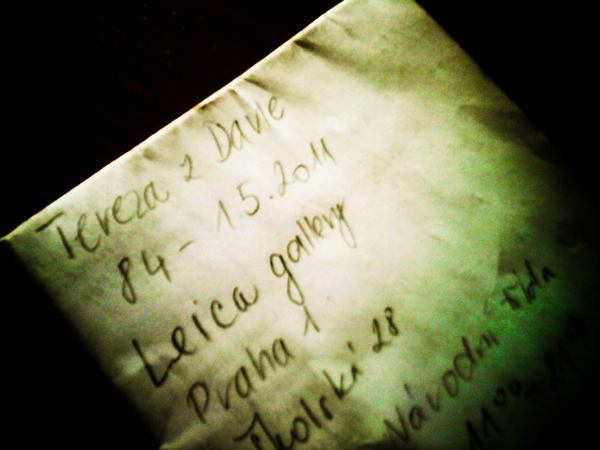 Tereza z Davle
84 - 1.5.2011
Leica gallery
Praha 1
Školská 28
Národní třída
11⁰⁰ - 21⁰⁰